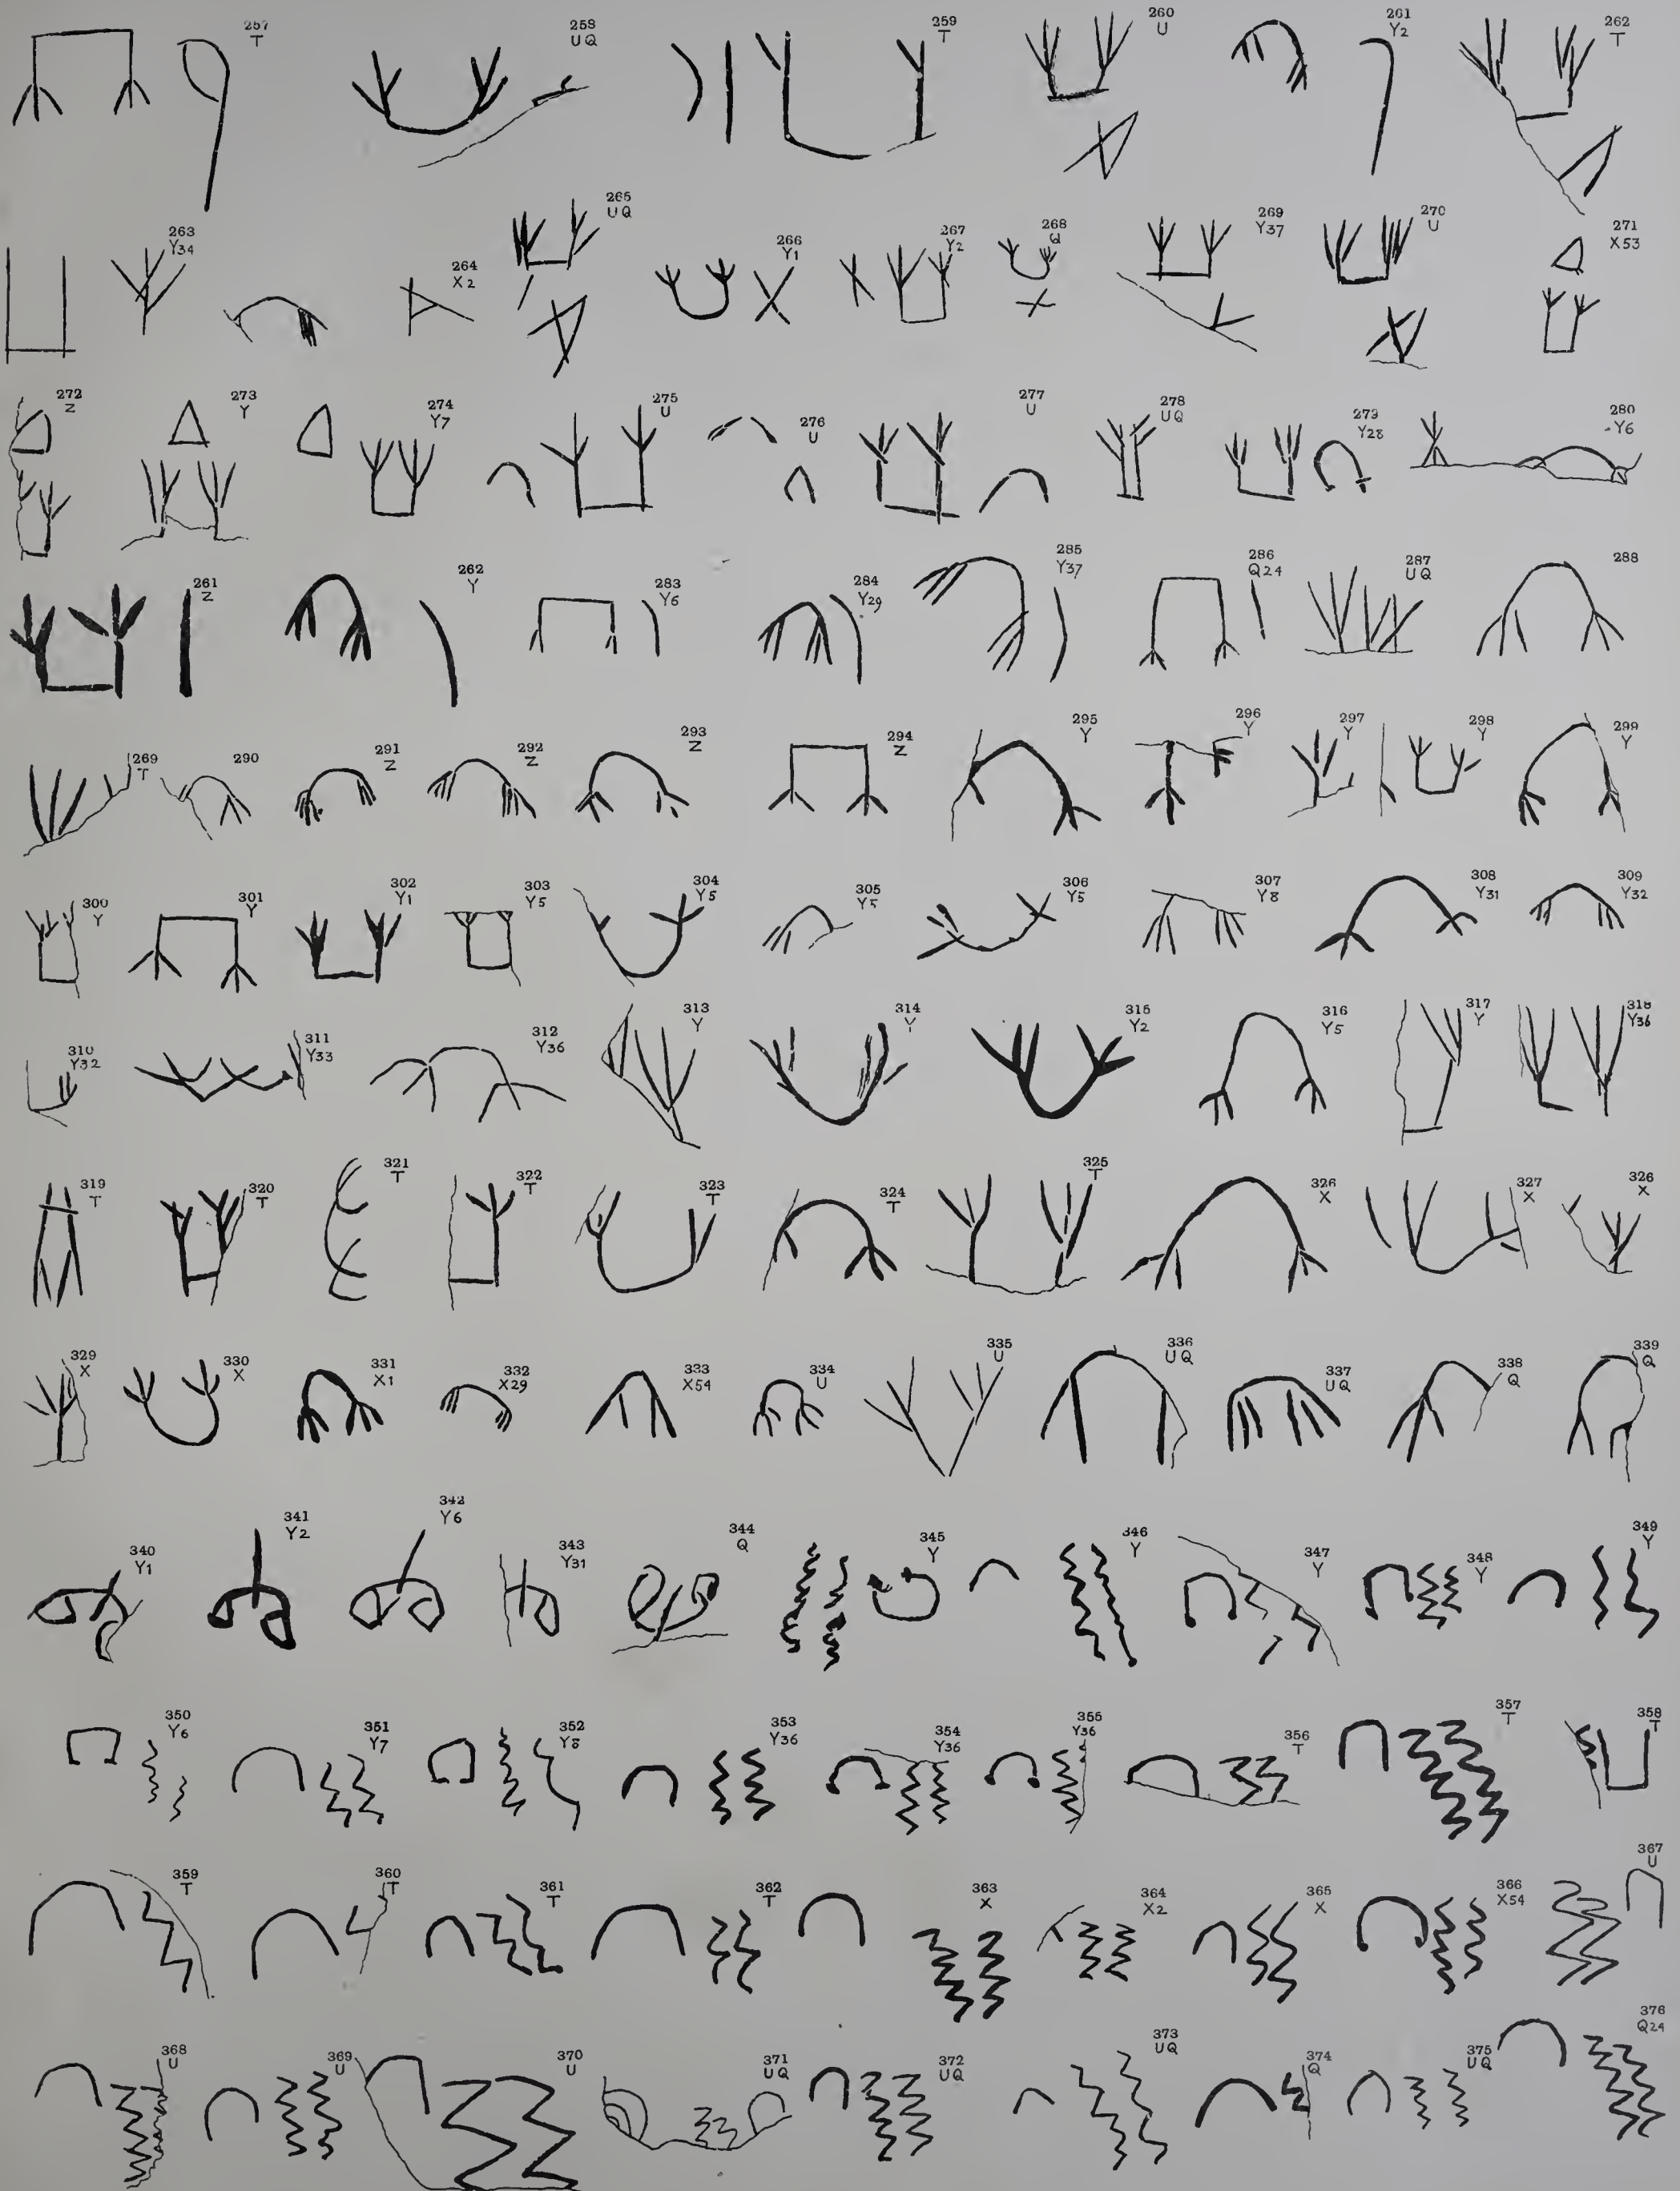 257
T
258
UQ
259
T
260
U
261
Y2
262
T
263
Y34
264
X2
265
UQ
266
Y1
267
Y2
268
Q
269
Y37
270
U
271
X53
272
Z
273
Y
274
Y7
275
U
276
U
277
U
278
UQ
279
Y28
280
Y6
261
Z
262
Y
283
Y6
284
Y29
285
Y37
286
Q24
287
UQ
288
269
T
290
291
Z
292
Z
293
Z
294
Z
295
Y
296
Y
297
Y
298
Y
299
Y
300
Y
301
Y
302
Y1
303
Y5
304
Y5
305
Y5
306
Y5
307
Y8
308
Y31
309
Y32
310
Y32
311
Y33
312
Y36
313
Y
314
Y
315
Y2
316
Y5
317
Y
318
Y36
319
T
320
T
321
T
322
T
323
T
324
T
325
T
326
X
327
X
326
X
329
X
330
X
331
X1
332
X29
333
X54
334
U
335
U
336
UQ
337
UQ
338
Q
339
Q
340
Y1
341
Y2
342
Y6
343
Y31
344
Q
345
Y
346
Y
347
Y
348
Y
349
Y
350
Y6
351
Y7
352
Y8
353
Y36
354
Y36
355
Y36
356
T
357
T
358
T
359
T
360
T
361
T
362
T
363
X
364
X2
365
X
366
X54
367
U
368
U
369
U
370
U
371
UQ
372
UQ
373
UQ
374
Q
375
UQ
376
Q24